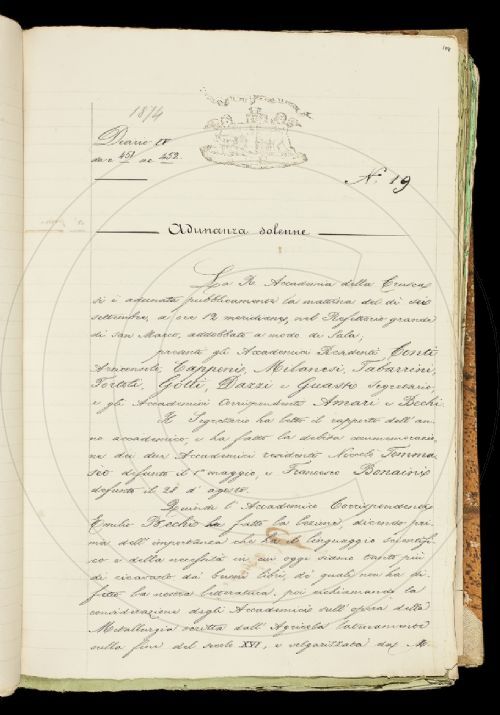 1874
Diario
da c 451 a c 452.
N. 19
Adunanza solenne
La R. Accademia della Crusca
si è adunata pubblicamente la mattina del dì sei
settembre, a ore 12 meridiane, nel Refettorio grande
di San Marco, addobbato a modo di Sala,
presenti gli Accademici Residenti Conti
Arciconsolo, Capponi, Milanesi, Tabarrini,
Tortoli, Gotti, Dazzi e Guasti Segretario
e gli Accademici Corrispondenti Amari e Bechi.
Il Segretario ha letto il rapporto dell'an-
no accademico, e ha fatto la debita commemorazio-
ne dei due Accademici residenti Niccolò Tomma-
seo defunto il 1° maggio, e Francesco Bonaini
defunto il 28 d'agosto.
Quindi l'Accademico Corrispondente
Emilio Bechi ha fatto la lezione, dicendo pri-
ma dell'importanza che ha il linguaggio scientifi-
co e della necessità in cui oggi siamo tanto più
di ricavarlo da' buoni libri, de' quali non ha di-
fetto la nostra letteratura. poi richiamando la
considerazione degli Accademici sull'opera della
Metallurgia scritta dall'Agricola latinamente
sulla fine del secolo XVI, e volgarizzata da M.